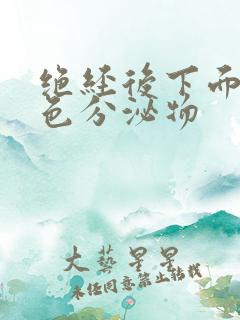 绝经后下而
色分泌物
大艺星星
未经同意禁止转载